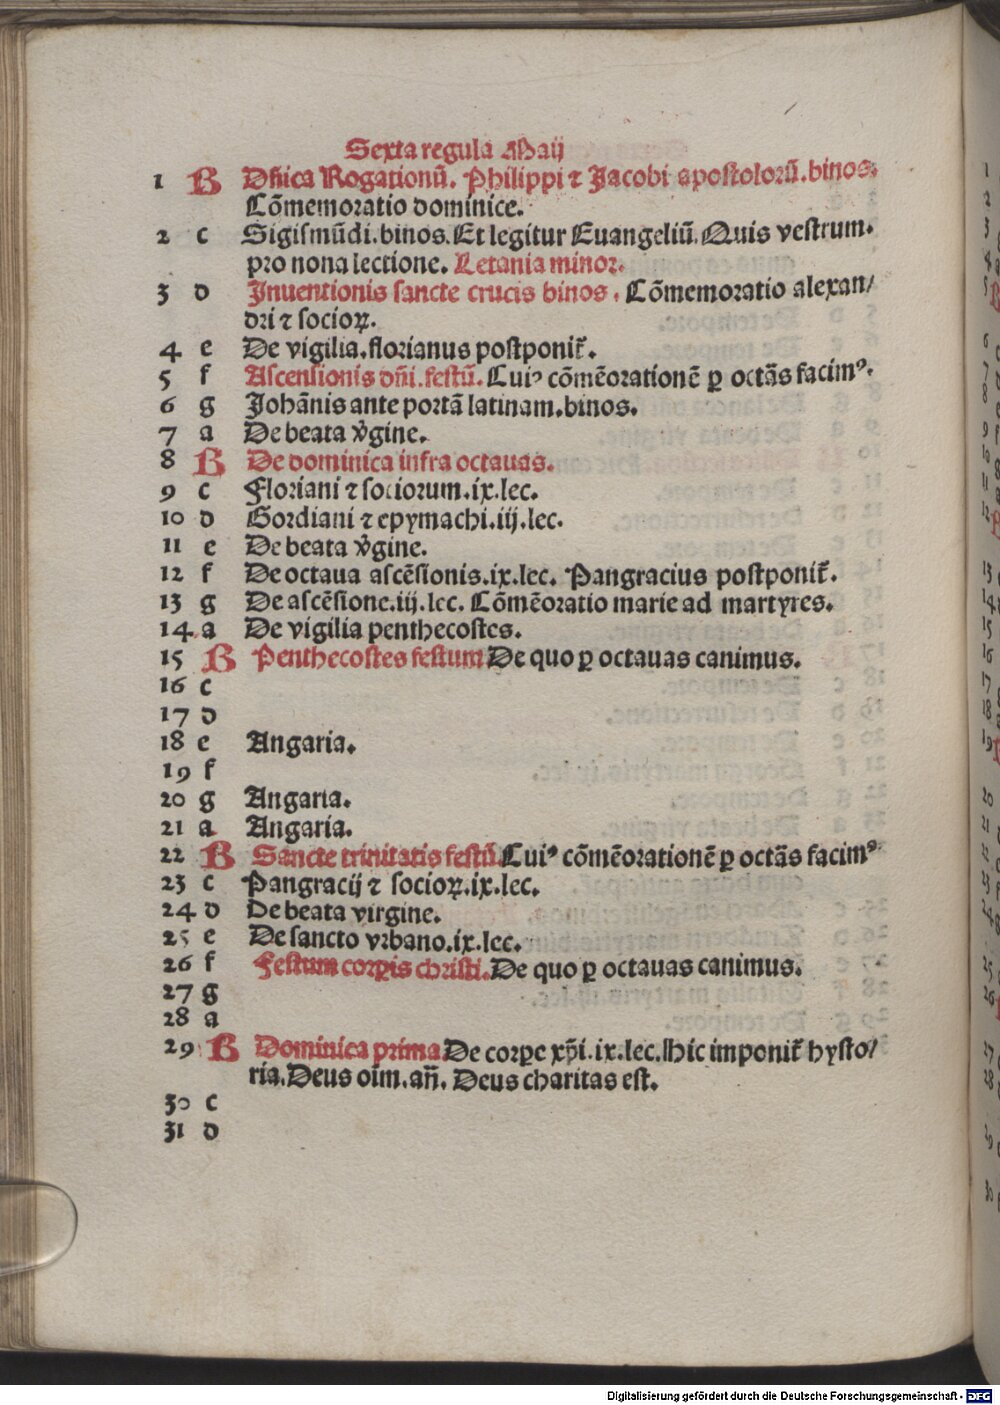 Sexta regula Maij
1 B Dñica Rogationū. Philippi ⁊ Jacobi apostolorū. binos.
Cōmemoratio dominice.
2 c Sigismūdi. binos. Et legitur Euangeliū. Quis vestrum.
pro nona lectione. Letania minor.
3 d Inuentionis sancte crucis binos. Cōmemoratio alexan/
dri ⁊ socioꝝ.
4 e De vigilia. florianus postponit᷑.
5 f Ascensionis dn̄i. festū. Cuiꝰ cōmēorationē ꝑ octās facimꝰ.
6 g Johānis ante portā latinam. binos.
7 a De beata v̓gine.
8 B De dominica infra octauas.
9 c Floriani ⁊ sociorum. ix. lec.
10 d Gordiani ⁊ epymachi. iij. lec.
11 e De beata v̓gine.
12 f De octaua ascēsionis. ix. lec. Pangracius postponit᷑.
13 g De ascēsione. iij. lec. Cōmēoratio marie ad martyres.
14 a De vigilia penthecostes.
15 B Penthecostes festum De quo ꝑ octauas canimus.
16 c
17 d
18 e Angaria.
19 f
20 g Angaria.
21 a Angaria.
22 B Sancte trinitatis festū Cuiꝰ cōmēorationē ꝑ octās facimꝰ
23 c Pangracij ⁊ socioꝝ. ix. lec.
24 d De beata virgine.
25 e De sancto vrbano. ix. lec.
26 f Festum corꝑis christi. De quo ꝑ octauas canimus.
27 g
28 a
29 B Dominica prima De corꝑe xp̄i. ix. lec. Hic imponit᷑ hysto/
ria. Deus oīm. an̄. Deus charitas est.
30 c
31 d
Digitalisierung gefördert durch die Deutsche Forschungsgemeinschaft - DFG